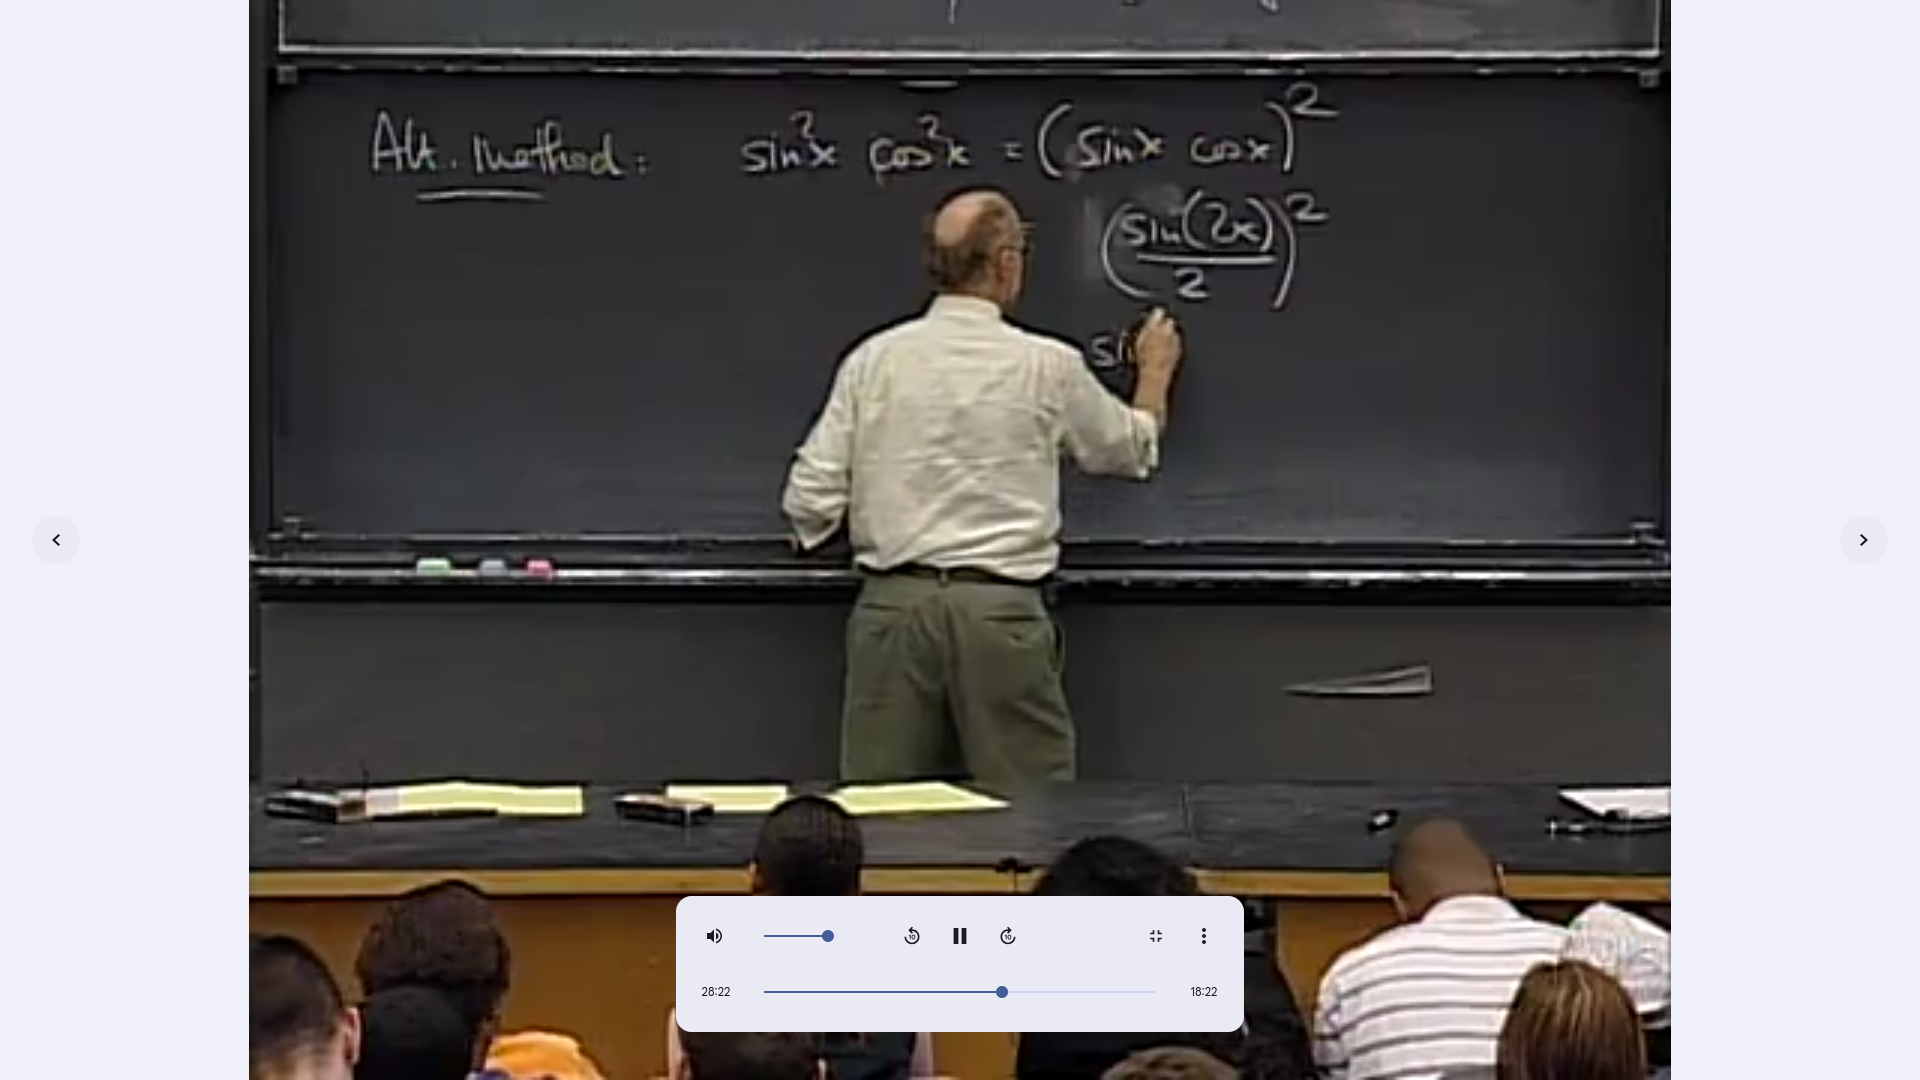 Alt. method: sin²x cos²x = (sinx cosx)²
(sin(2x)/2)²
si
28:22
18:22